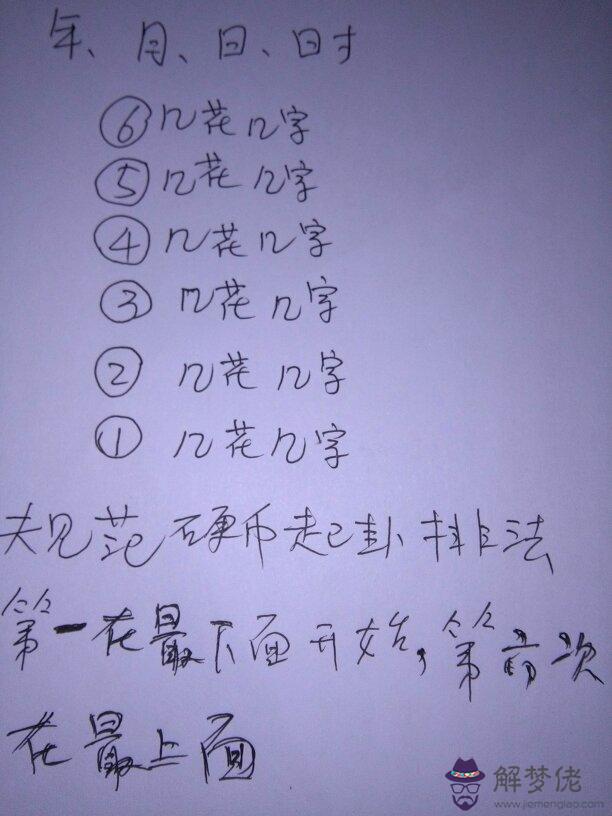 年、月、日、时
⑥几花几字
⑤几花几字
④几花几字
③几花几字
②几花几字
①几花几字
规范硬币起卦排法
第一在最下面开始，第六次
在最上面
解梦佬
www.jiemenglao.com